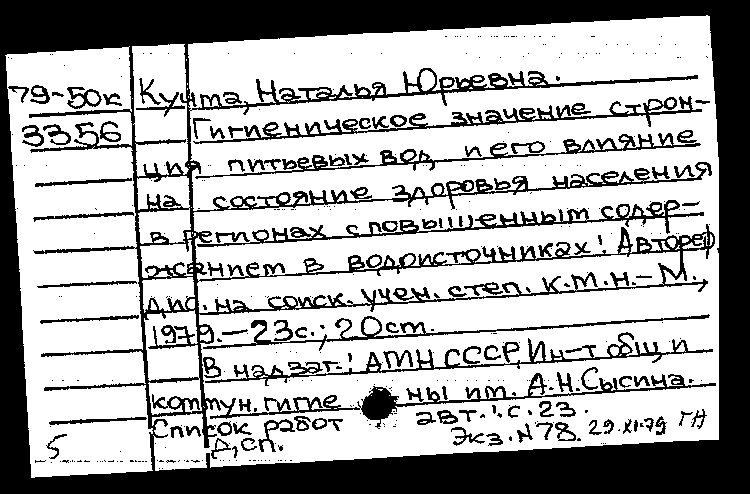 79-50к Кучма, Наталья Юрьевна.
3356 Гигиеническое значение строн-
ция питьевых вод и его влияние
на состояние здоровья населения
в регионах с повышенным содер-
жанием в водоисточниках: Автореф.
дис. на соиск. учен. степ. к.м.н.-М.,
1979.-23с.; 20см.
В надзаг.: АМН СССР, Ин-т общ. и
коммун. гигие ны им. А.Н.Сысина.
Список работ авт.: с. 23.
5 Д,сп. Экз. N 78. 29.XI.79 ГН